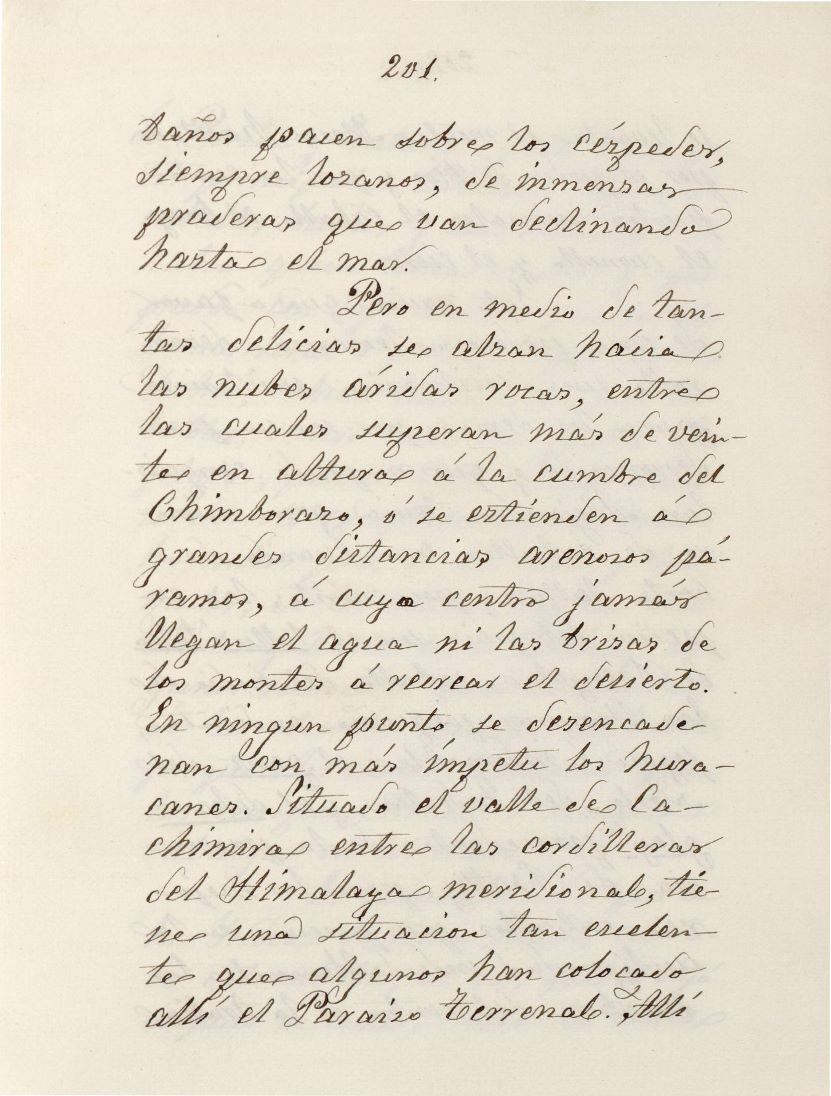 201.
baños pacen sobre los céspedes,
siempre lozanos, de inmensas
praderas que van declinando
hasta el mar.
Pero en medio de tan-
tas delicias se alzan hácia
las nubes áridas rocas, entre
las cuales superan más de vein-
te en altura á la cumbre del
Chimborazo, ó se estienden á
grandes distancias arenosos pá-
ramos, á cuyo centro jamás
llegan el agua ni las brisas de
los montes á recrear el desierto.
En ningun punto se desencade
nan con más ímpetu los hura-
canes. Situado el valle de Ca-
chimira entre las cordilleras
del Himalaya meridional, tie-
ne una situacion tan escelen-
te que algunos han colocado
allí el Paraiso Terrenal. Allí